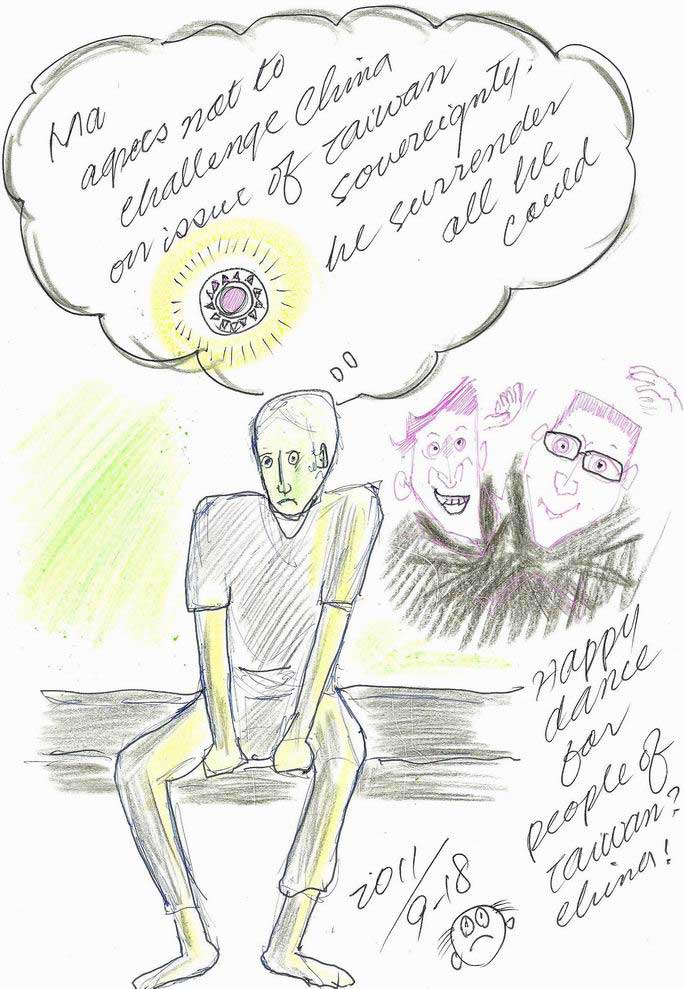 Ma
agrees not to
challenge China
on issue of Taiwan
sovereignty.
he surrender
all he
could
Happy
dance
for
people of
Taiwan?
china!
2011/
9-18